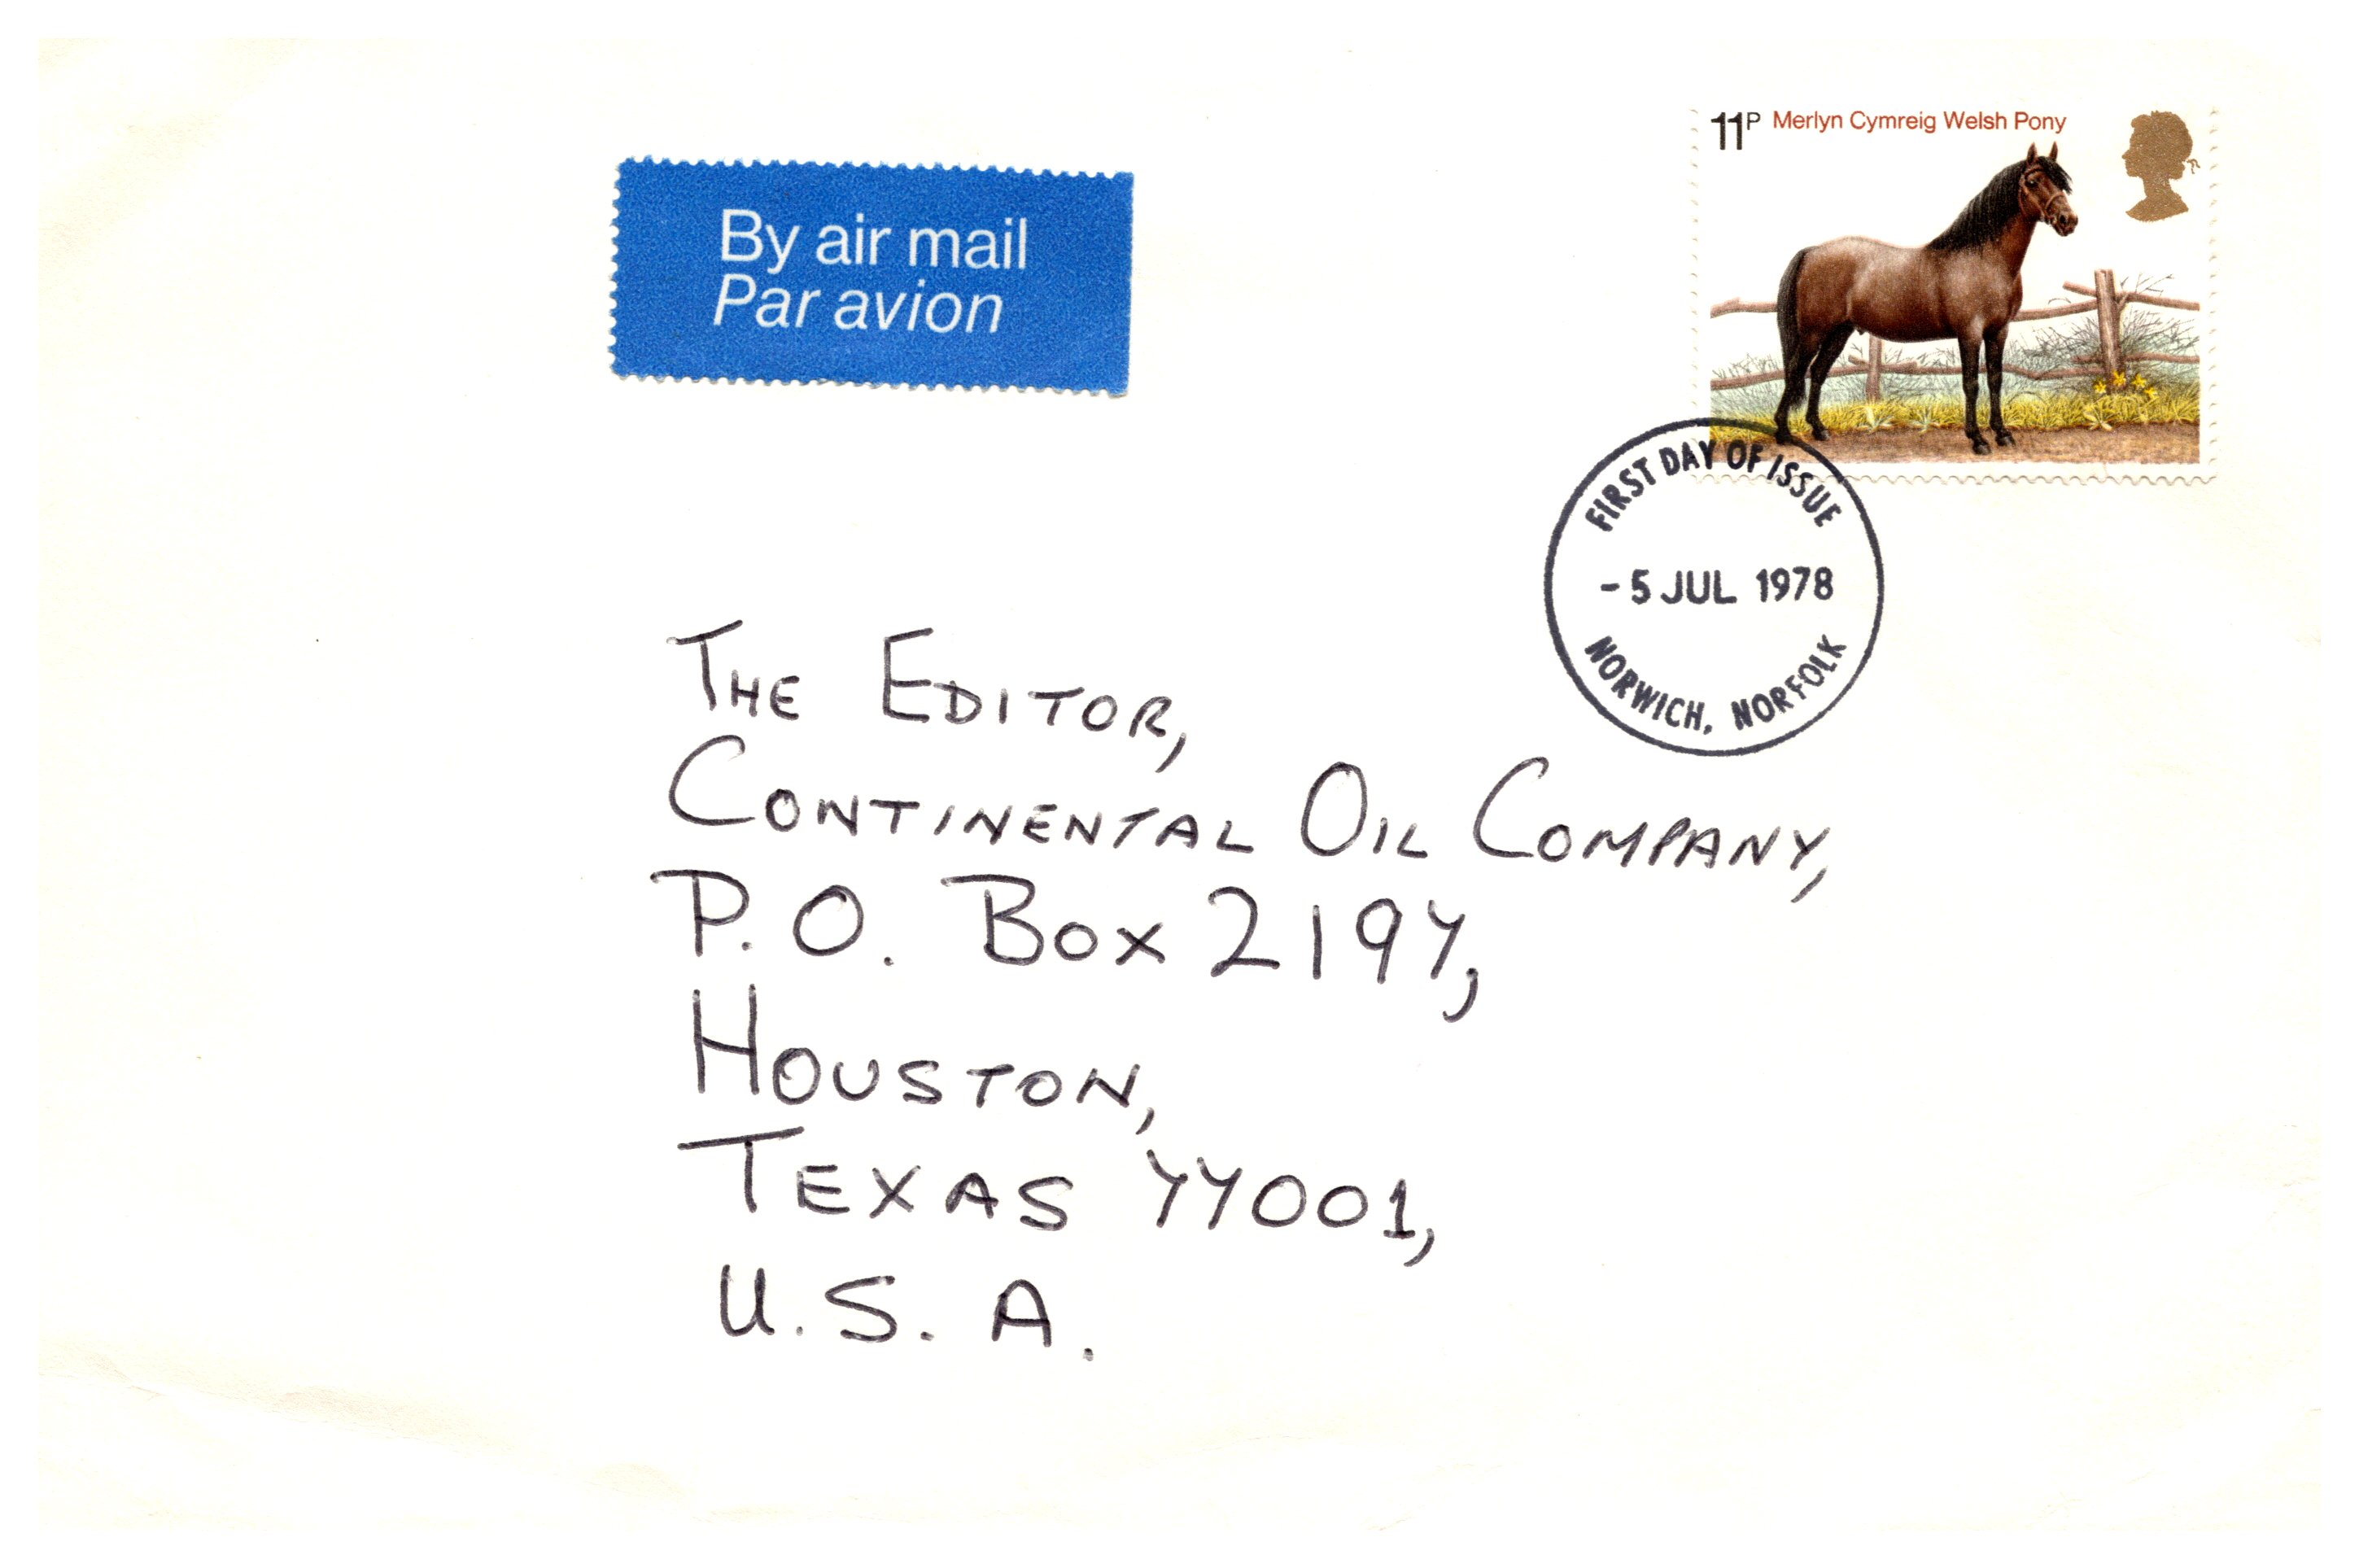 By air mail
Par avion
11P Merlyn Cymreig Welsh Pony
FIRST DAY OF ISSUE
- 5 JUL 1978
NORWICH, NORFOLK
THE EDITOR,
CONTINENTAL OIL COMPANY,
P.O. BOX 2197,
HOUSTON,
TEXAS 77001,
U.S.A.